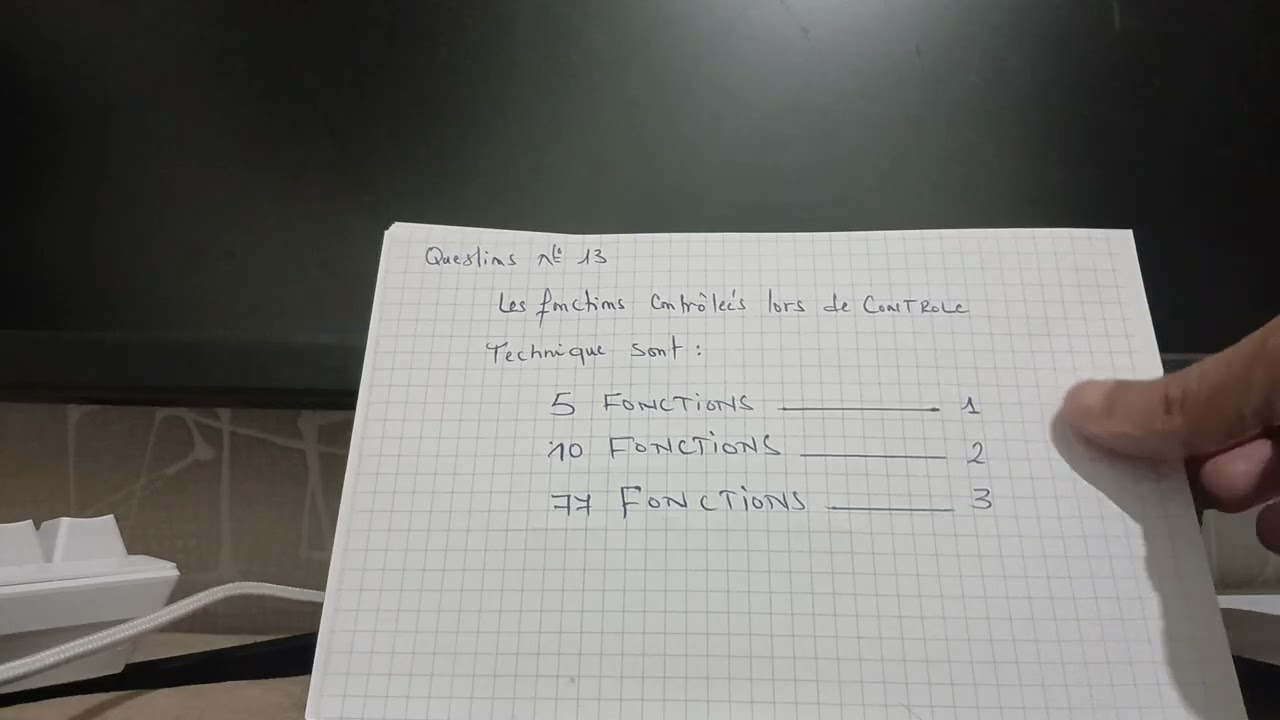 Questions n° 13
Les fonctions Contrôleés lors de CONTROLE
Technique sont :
5 FONCTIONS 1
10 FONCTIONS 2
77 FONCTIONS 3